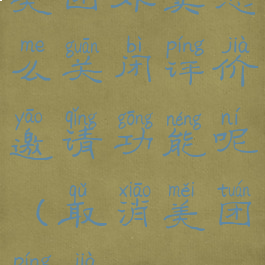 me guān bì píng jià
么关闭评价
yāo qǐng gōng néng ní
邀请功能呢
qǔ xiāo měi tuán
(取消美团
píng jià